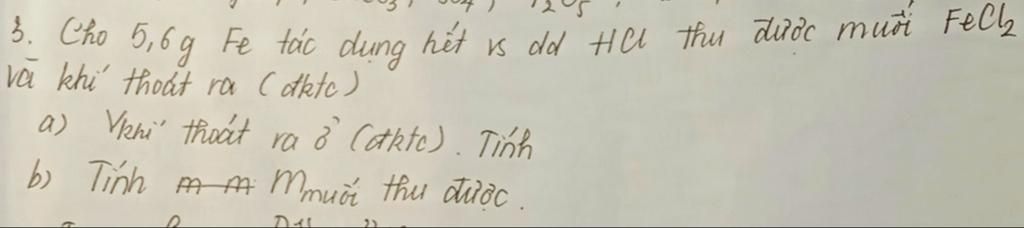 3. Cho 5,6g Fe tác dụng hết vs dd HCl thu được muối FeCl2
và khí thoát ra (đktc)
a) Vkhí thoát ra ở (đktc). Tính
b) Tính m m Mmuối thu được.